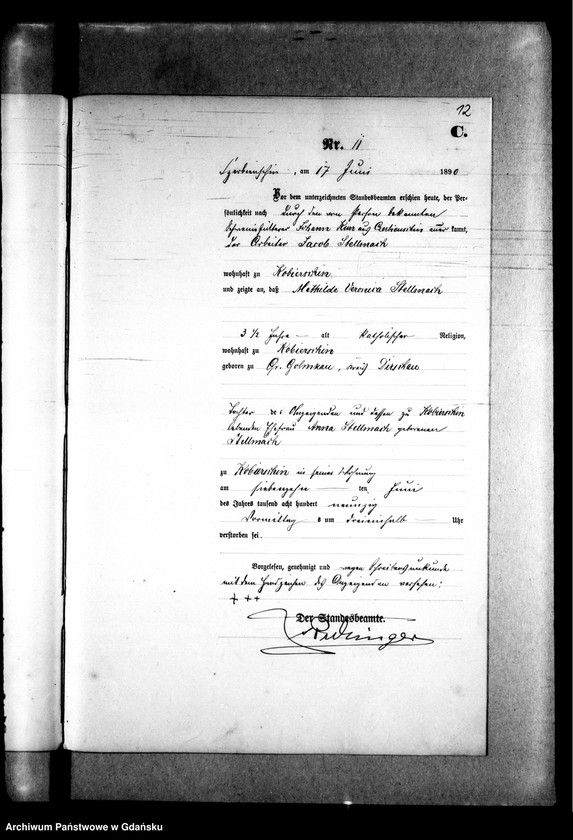 12
C.
Nr. 11
, am 17 Juni 1890
Vor dem unterzeichneten Standesbeamten erschien heute, der Per-
sönlichkeit nach durch den von Person bekannten
Johann aus kannt,
der Arbeiter Jacob Stellmach
wohnhaft zu Kobierschin
und zeigte an, daß Mathilde Veronica Stellmach
3 1/2 Jahre alt katholischer Religion,
wohnhaft zu Kobierschin
geboren zu Gr. Golmkau, Kreis Dirschau
Tochter des Anzeigenden und dessen zu Kobierschin
lebenden Ehefrau Anna Stellmach geborenen
Stellmach
zu Kobierschin in seiner Wohnung
am siebenzehn ten Juni
des Jahres tausend acht hundert neunzig
Vormittag s um dreieinhalb Uhr
verstorben sei.
Vorgelesen, genehmigt und wegen Schreibensunkunde
mit dem Handzeichen des Anzeigenden versehen:
+ + +
Der Standesbeamte.
Archiwum Państwowe w Gdańsku